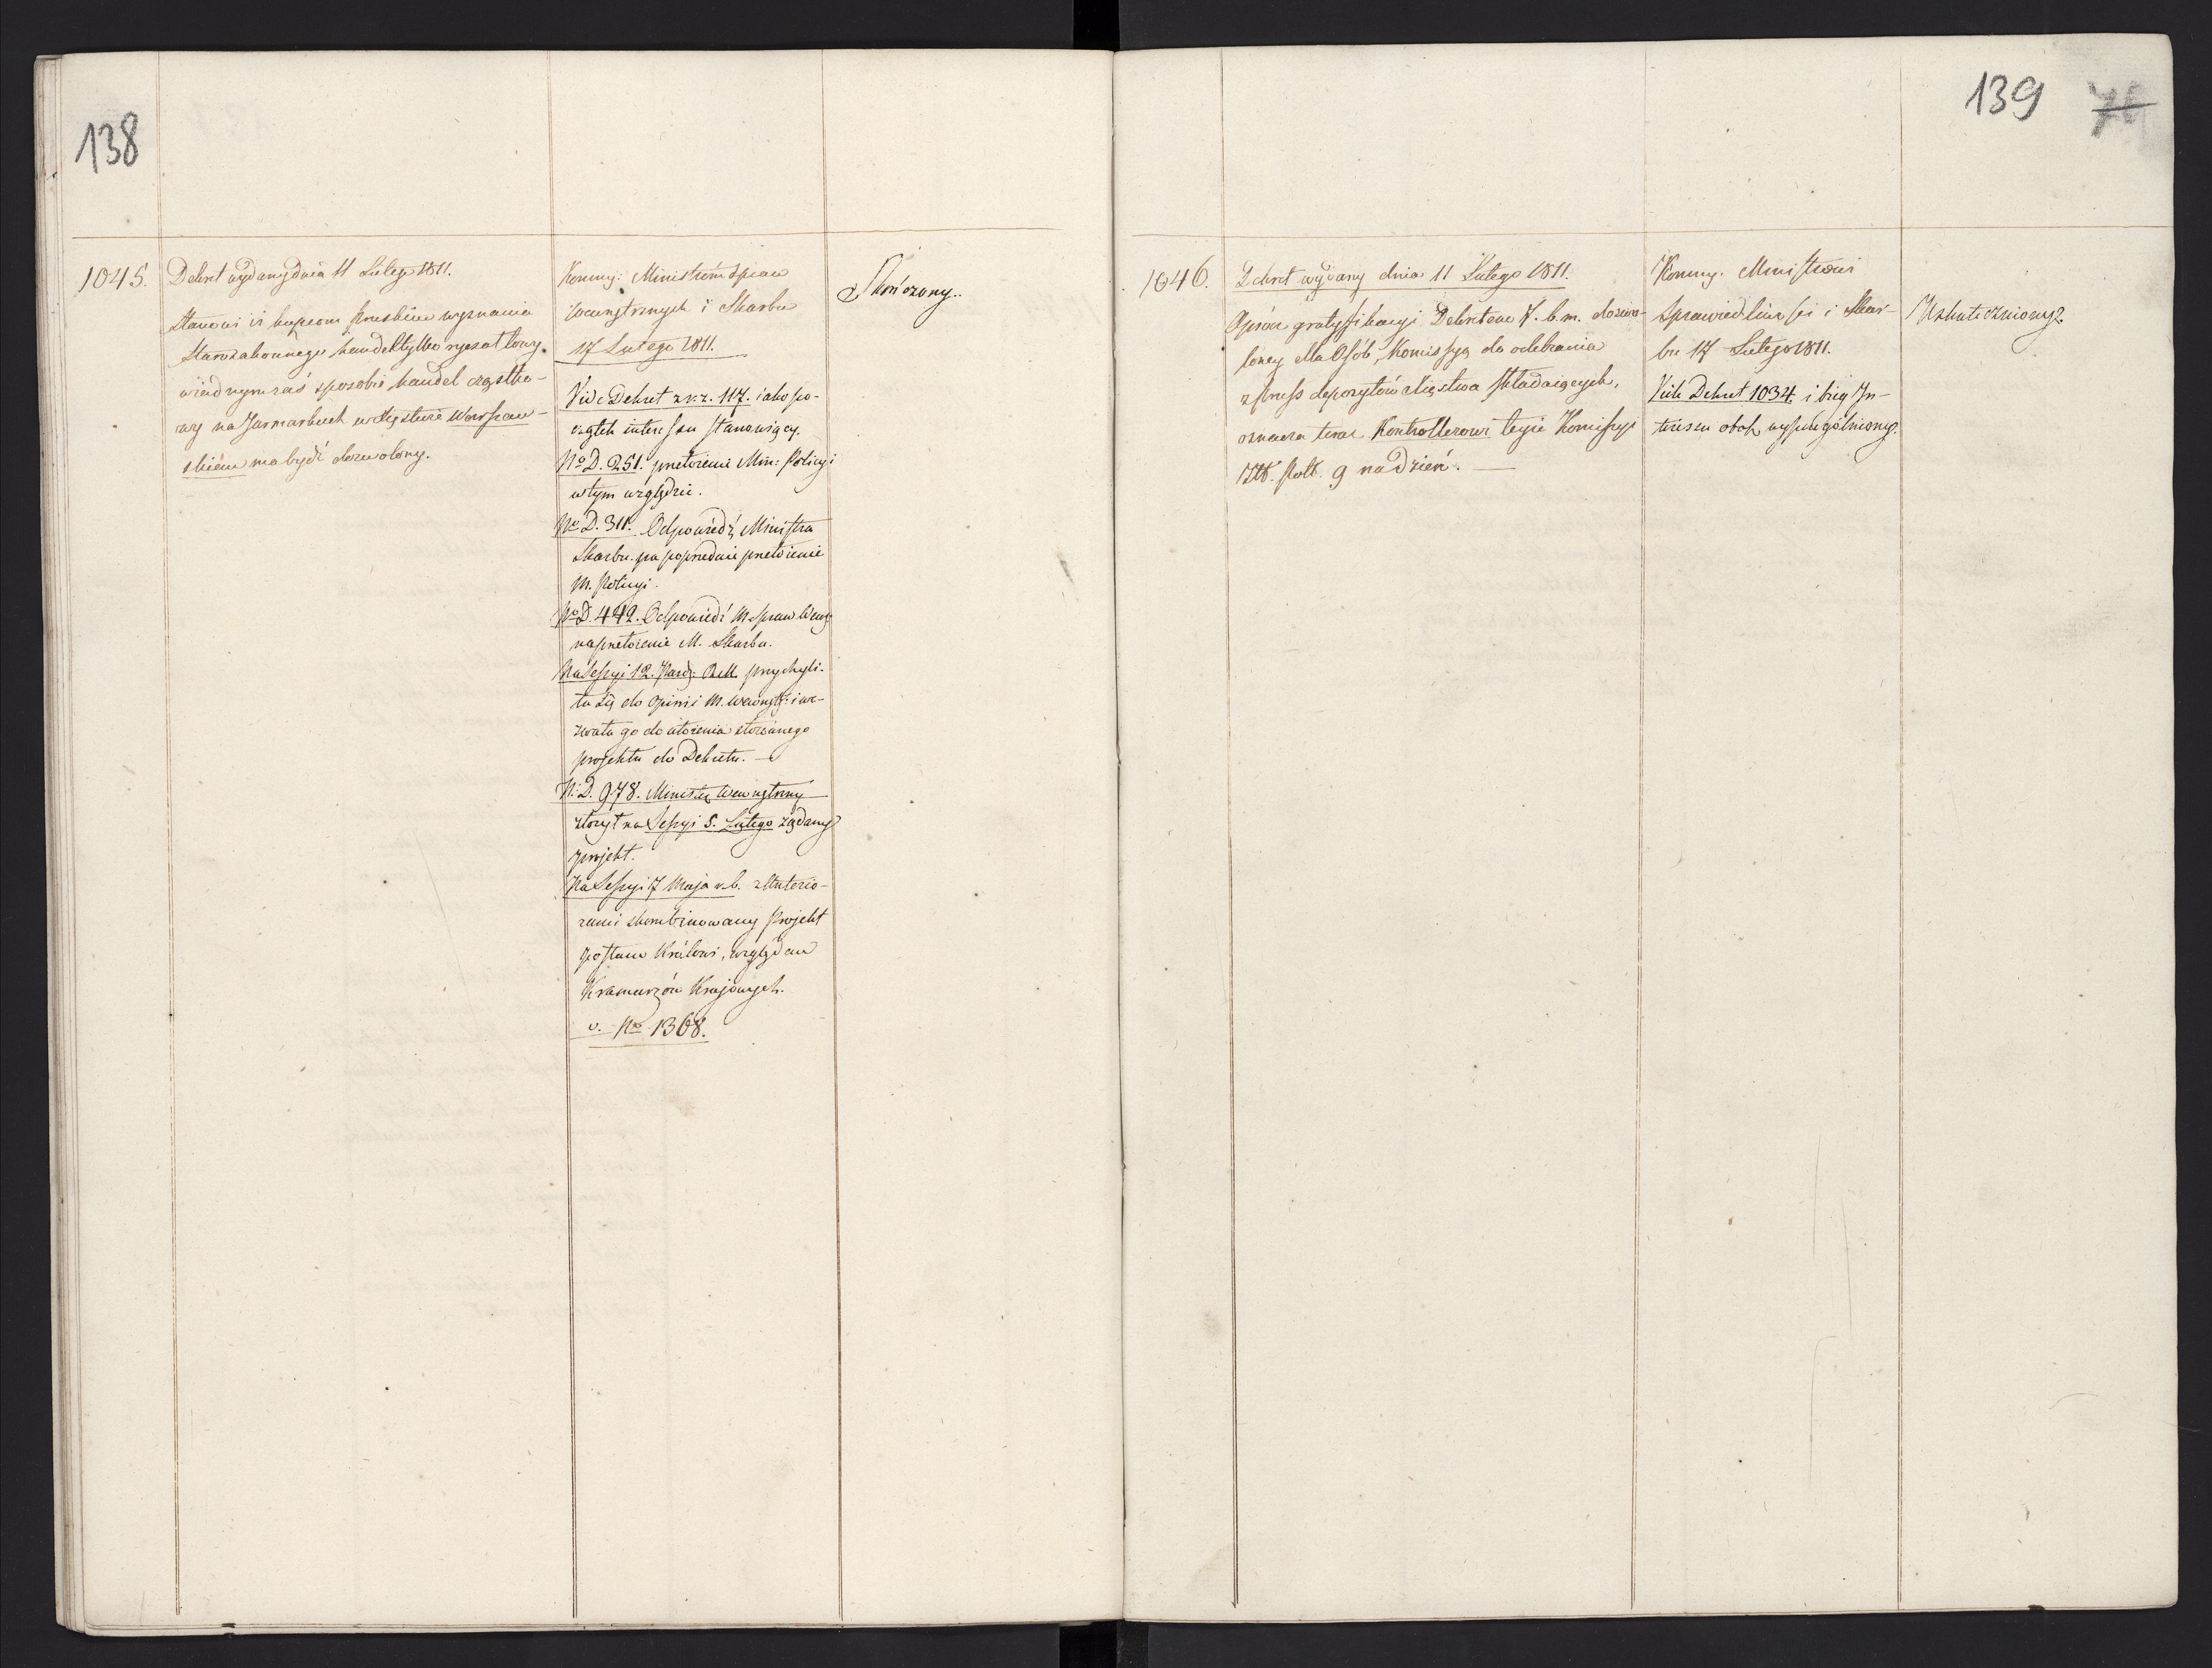 138
1045.
Dekret wydany dnia 11 Lutego 1811.
Stanowi iż kupcom Pruskim wyznania
Starozakonnego handel tylko ryczałtowy,
w żadnym zaś sposobie handel cząstko-
wy na Jarmarkach w Xięstwie Warszaw-
skiém ma bydź dozwolony.
Kommg. Ministróm Spraw
Wewnętrznych i Skarbu
17 Lutego 1811.
Vide Dekret z r. z. 117. iako po-
czątek interessu stanowiący.
No D. 251. przełożenie Min: Policyi
w tym względzie.
No D. 311. Odpowiedź Ministra
Skarbu na poprzednie przełożenie
M. Policyi.
No D. 442. Odpowiedź M. Spraw Wewg
na przełożenie M. Skarbu.
Na Sessyi 12. Pazdz: przychyli-
ła się do Opinii M. Wewnętr: i we-
zwała go do ułożenia stosownego
projektu do Dekretu. —
N: D. 978. Minister Wewnętrzny
złożył na Sessyi 5. Lutego żądany
projekt.
Na Sessyi 7 Maja r. b.
skombinowany Projekt
Królowi, względem
Kramarzów Krajowych.
v. No 1368.
Skończony..
139
1046.
Dekret wydany dnia 11 Lutego 1811.
Oprócz gratyfikacyi Dekretem 7. b. m. dozwo-
loney dla Osób, Komissyą do odebrania
z Pruss depozytów Xięstwa składaiących,
oznacza teraz Kontrollerowi teyże Komissyi
Złł. Poll. 9 na dzień. —
Kommg. Ministrowi
Sprawiedliwości i Skar-
bu 17 Lutego 1811.
Vide Dekret 1034. i bieg In-
teressu obok wyszczególniony.
Uskuteczniony.